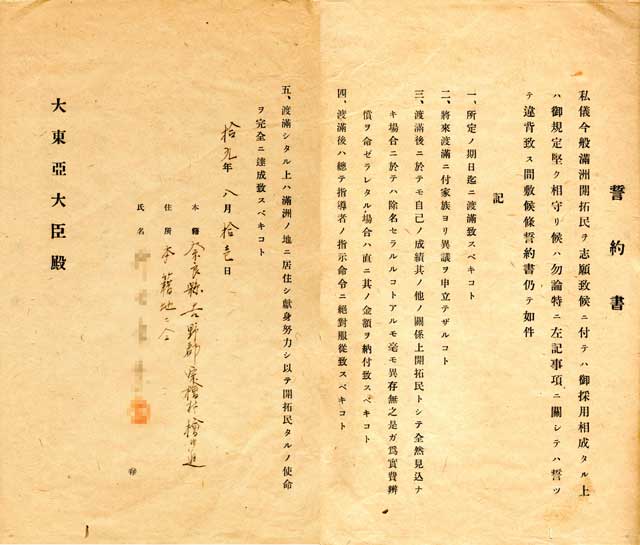 誓約書
私儀今般滿洲開拓民ヲ志願致候ニ付テハ御採用相成タル上
ハ御規定堅ク相守リ候ハ勿論特ニ左記事項ニ關シテハ誓ツ
テ違背致ス間敷候條誓約書仍テ如件
記
一、所定ノ期日迄ニ渡滿致スベキコト
二、將來渡滿ニ付家族ヨリ異議ヲ申立テザルコト
三、渡滿後ニ於テモ自己ノ成績其ノ他ノ關係上開拓民トシテ全然見込ナ
キ場合ニ於テハ除名セラルルコトアルモ毫モ異存無之是ガ爲實費辨
償ヲ命ゼラレタル場合ハ直ニ其ノ金額ヲ納付致スベキコト
四、渡滿後ハ總テ指導者ノ指示命令ニ絕對服從致スベキコト
五、渡滿シタル上ハ滿洲ノ地ニ居住シ獻身努力シ以テ開拓民タルノ使命
ヲ完全ニ達成致スベキコト
拾九年八月拾壱日
本籍 奈良縣吉野郡
住所 本籍地ニ仝
氏名
㊞
大東亞大臣殿